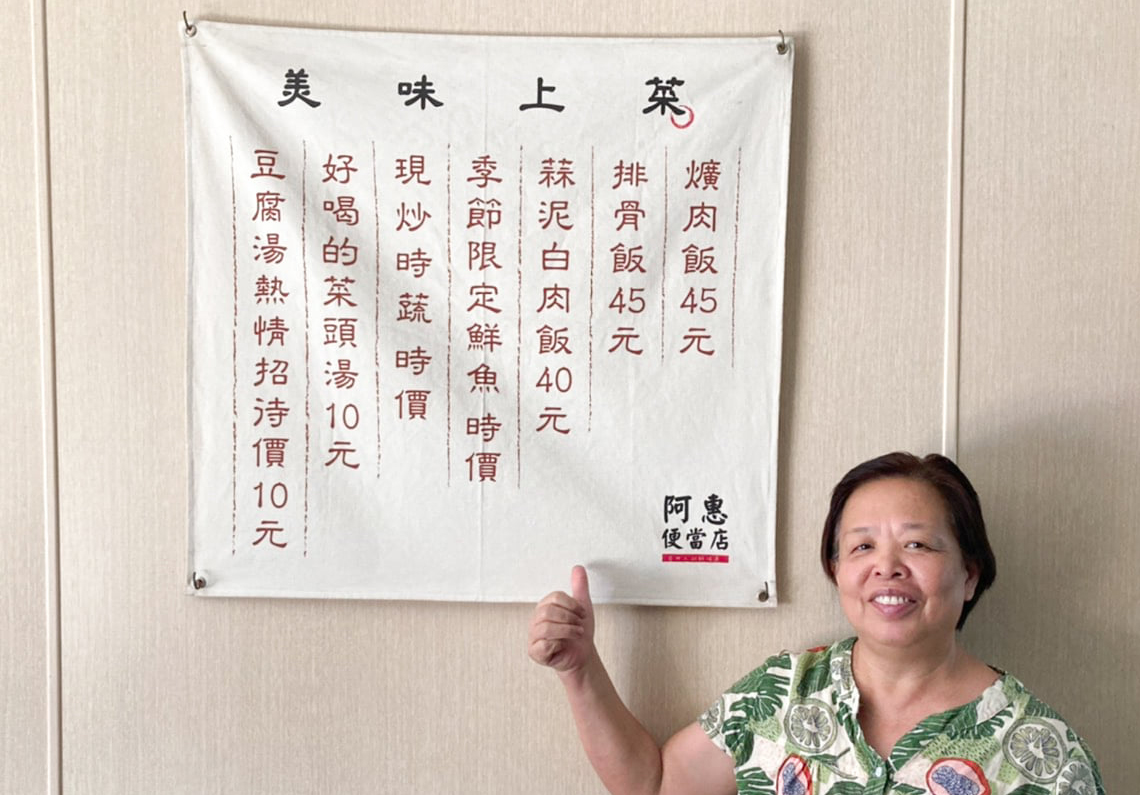 美味上菜
爌肉飯45元
排骨飯45元
蒜泥白肉飯40元
季節限定鮮魚 時價
現炒時蔬 時價
好喝的菜頭湯10元
豆腐湯熱情招待價10元
阿惠
便當店